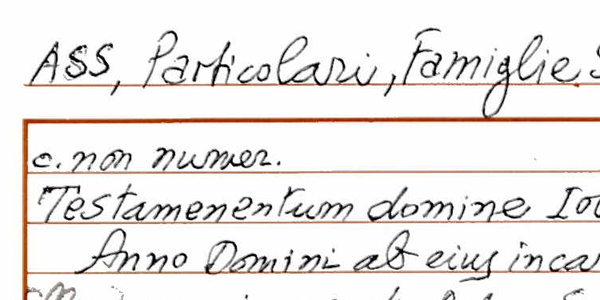 ASS, Particolari, Famiglie
c. non numer.
Testamenentum domine
Anno Domini ab eius